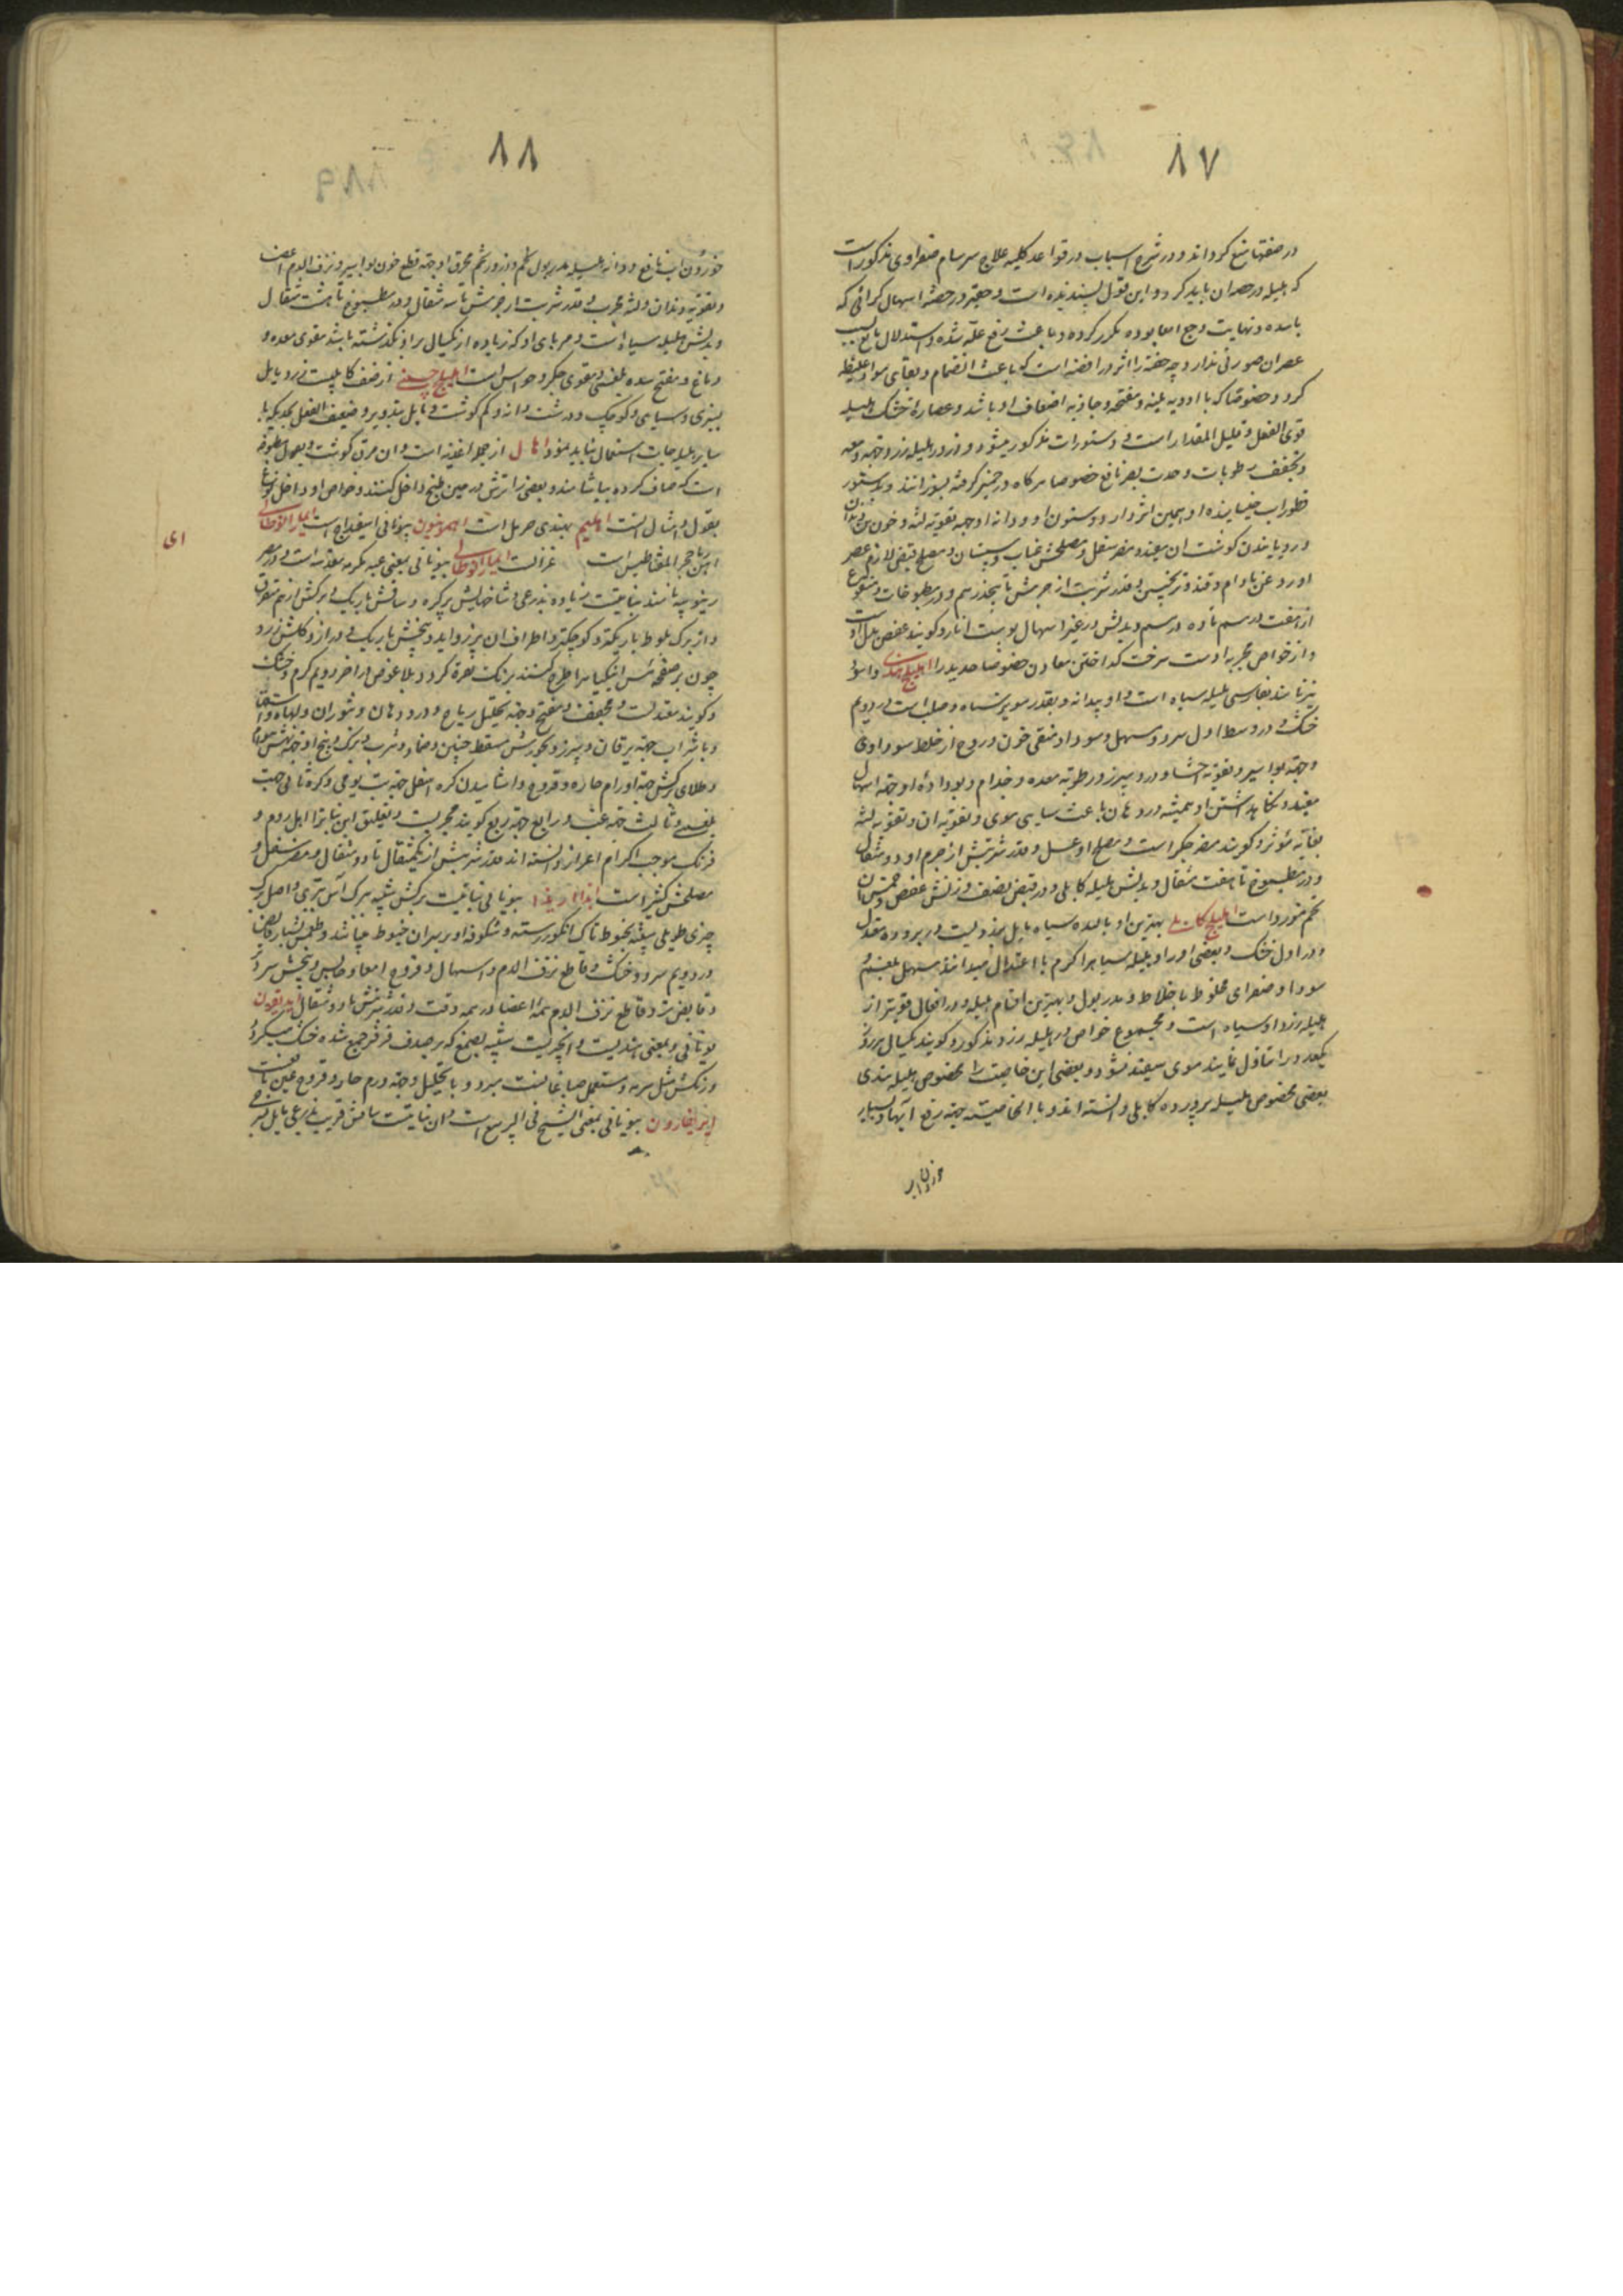 ۸۷
در حقنها منع کرده‌اند و در شرح اسباب در قواعد کلیه علاج سرسام صفراوی مذکور است
که هلیله در حقنه ان باید کرد و این قول پسندیده است و حقیر در حقنه اسهال کرانی که
با سده و نهایت وجع امعا بوده مکرر کرده و باعث رفع علة شده و استدلال تابع بسبب
عصر ان صورتی ندارد چه حقنه را اثر در افضیه است که باعث انضمام و بقای مواد غلیظه
کردد خصوصا که با ادویه ملینه و مفتحه و جاذبه اضعاف او باشد و عصاره خشک هلیله
قوی الفعل و قلیل المقدار است و در دستورات مذکور میشود و ذرور هلیله زرد جهة دمعه
و تجفیف رطوبات و حدت بصر نافع خصوصا هرکاه در خمیر کرفته بسوزانند و بدستور
قطور اب خیسانیده او همین اثر دارد و سنون او و دانه او جهة تقویة لثه و خون بن دندان
و رویانیدن کوشت ان مفید و مضر سفل و مصلحش عناب و سپستان و مصلح قبض لازم عصر
او روغن بادام و قند و ترنجبین و قدر شربت از جرمش تا پنجدرهم و در مطبوخات و منقوع
از هفت درهم تا ده درهم و بدلش در غیر اسهال پوست انار و کویند عفص بدل اوست
و از خواص مجربه اوست سرعت کداختن معادن خصوصا حدید را اهلیلج هندی و اسود
نیز نامند بفارسی هلیله سیاه است و او بیدانه و بقدر مویز سیاه و صلب است در دویم
خشک و در وسط اول سرد و مسهل سودا و منقی خون و روح از خلط سوداوی
و جهة بواسیر و تقویة احشا و درد سپرز و رطوبة معده و جذام و بو داده او جهة اسهال
مفید و نکاهداشتن او همیشه در دهان باعث سیاهی موی و تقویة ان و تقویة لثه
بغایة مؤثر و کویند مضر جکر است و مصلح او عسل و قدر شربتش از جرم او دو مثقال
و در مطبوخ تا هفت مثقال و بدلش هلیله کابلی و در قبض نصف وزنش عفص و خمس ان
تخم مورد است اهلیلج کابلی بهترین او بالیده سیاه مایل بزردیست و در برودة معتدل
و در اول خشک و بعضی او را و هلیله سیاه را کرم با اعتدال میدانند مسهل بلغم و
سودا و صفرای مخلوط باخلاط و مدر بول و بهترین اقسام هلیله و در افعال قویتر از
هلیله زرد و سیاه است و مجموع خواص در هلیله زرد مذکور و کویند یکسال هر روز
یکعدد را تناول نمایند موی سفید نشود و بعضی این خاصیت را مخصوص هلیله هندی
بعضی مخصوص هلیله پرورده کابلی دانسته اند و با الخاصیته جهة رفع ابها و بسیار
خوردن اب
۸۸
خوردن اب نافع و دانه هلیله مدر بول کم و ذرور تخم محرق او جهة قطع خون بواسیر و نزف الدم اعضا
و تقویة دندان و لثه مجرب و قدر شربت از جرمش تا سه مثقال و در مطبوخ تا هشت مثقال
و بدلش هلیله سیاه است و مربای او که زیاده از یکسال بر او نکذشته باشد مقوی معده و
دماغ و مفتح سده بلغمی و مقوی جکر و حواس است اهلیلج چینی از صنف کابلیست زرد مایل
بسبزی و سیاهی و کوچک و درشت دانه و کم کوشت و مایل بتدویر و ضعیف الفعل بحدیکه با
سایر هلیلجات استعمال نباید نمود اهال از جمله اغذیه است و ان مرق کوشت و بعمل مطبوخه
است که صاف کرده بیاشامند و بعضی را ترش در حین طبخ داخل کنند و خواص او داخل انواع
بقول و امثال انست اهلیم بهندی حرمل است اهمونیون بیونانی اسفیداج است ایمارا لوطالی
اهن ربا حجر المقناطیس است غزالت ایمارا لوطالی بیونانی بمعنی عبه مکرمه مقدسه است و در مصر
زیتونیه نامند نباتیست زیاده بذرعی و شاخهایش پر کره و ساقش باریک و برکش از هم متفرق
و از برک بلوط باریکتر و کوچکتر و اطراف ان پرز و اید و بیخش باریک و دراز و کلش زرد
چون بر صفحه مس انیکیا را طرح کنند برنک نقره کردد بلا غوص در اخر دویم کرم و خشک
و کویند معتدلست و مجفف و مفتح و جهة تحلیل ریاح و درد دهان و شوران و لهاة و استسقا
و با شراب جهة یرقان و سپرز و بخورش مسقط جنین و ضماد و شرب و برک و بیخ او جهة نهش هوام
و طلای برکش جهة اورام حاره و قروح و اشامیدن کره اسفل جهة تب یومی و کره ثانی جهت
بلغمی و ثالث جهة غب و رابع جهة ربع کویند مجربست و تعلیق این نبات را اهل روم و
فرنک موجب اکرام اعزاز دانسته اند قدر شربتش از یکمثقال تا دو مثقال و مضر سفل و
مصلحش کثیرا است ایدا ریذا بیونانی نباتیست برکش شبیه ببرک اس بری و اصل برک
چیزی طویلی شبیه بخیوط تاک انکور رسته و شکوفه او بر سر ان خیوط میباشد و طعمش بسیار قابض
در دویم سرد و خشک و قاطع نزف الدم و اسهال و قروح امعا و حابس و بیخش سرد تر
و قابض تر و قاطع نزف الدم همه اعضا در همه وقت و قدر شربتش تا دو مثقال ایدیقون
یونانی و بمعنی هندیست و ان چیزیست شبیه بصمغ که بر صدف فرفیر جمع شده خشک میکردد
و رنکش مثل سرمه و مستعمل صباغانست مبرد و با تحلیل و جهة ورم حار و قروح عین نافعست
ایرابغارون بیونانی بمعنی الشیخ فی الربیع است و ان نباتیست ساقش قریب بذرعی مایل بسرخی
ای